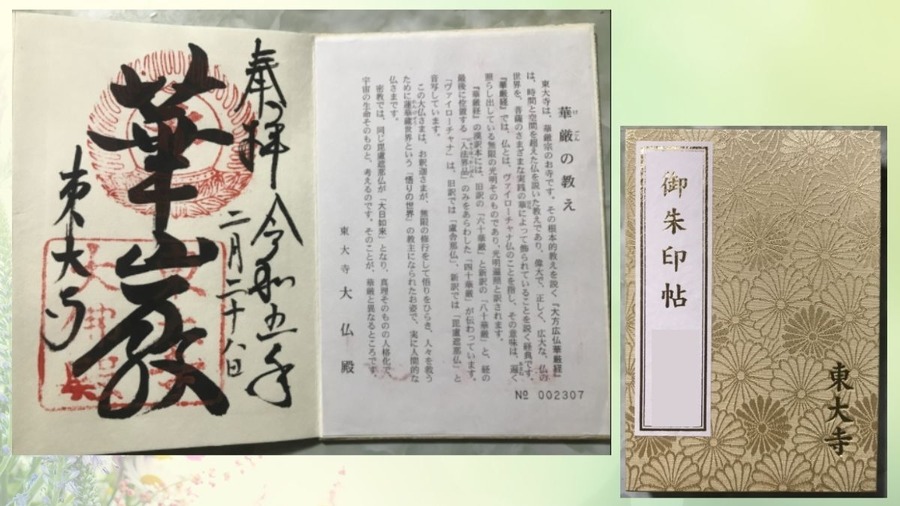 華厳の教え
東大寺は、華厳宗のお寺です。その根本的教えを説く『大方広仏華厳経』
は、時間と空間を超えた仏を説いた教えであり、偉大で、正しく、広大な、仏の
世界を、菩薩のさまざまな実践の華によって飾られていることを説く経典です。
『華厳経』では、仏とは、ヴァイローチャナ仏のことを指し、その意味は、遍く
照らし出している無限の光明そのものであり、光明遍照と訳されます。
『華厳経』の漢訳本には、旧訳の「六十華厳」と新訳の「八十華厳」と、経の
最後に位置する「入法界品」のみをあらわした「四十華厳」が伝わっています。
「ヴァイローチャナ」は、旧訳では「盧舎那仏」、新訳では「毘盧遮那仏」と
音写しています。
この大仏さまは、お釈迦さまが、無限の修行をして悟りをひらき、人々を救う
ために蓮華蔵世界という「悟りの世界」の教主になられたお姿で、実に人間的な
仏さまです。
密教では、同じ毘盧遮那仏が「大日如来」となり、真理そのものの人格化で、
宇宙の生命そのものと、考えるのです。そのことが、華厳と異なるところです。
東大寺 大仏殿
№ 002307
奉拝 令和五年
二月二十八日
華嚴
東大寺
御朱印帖
東大寺